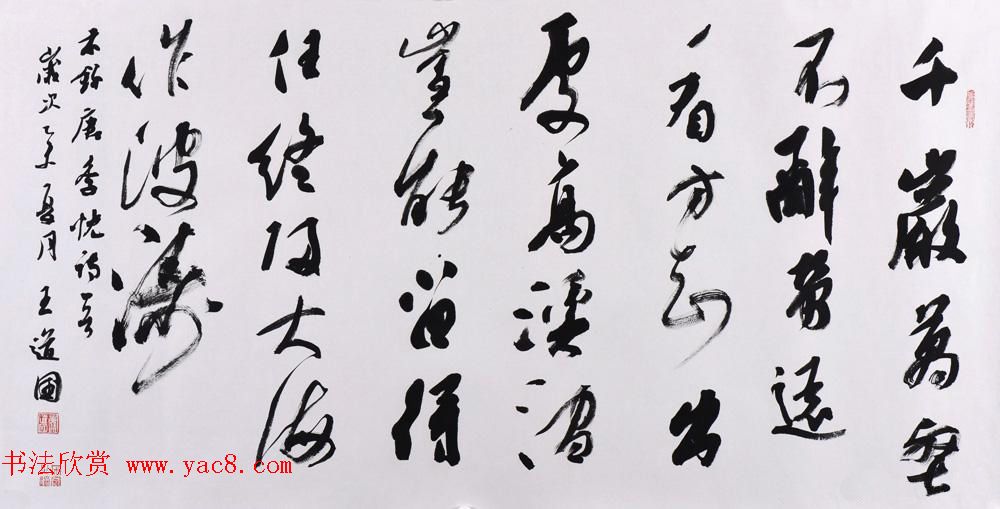 千巖萬壑
不辭勞遠
看方知出
處高溪澗
豈能留得
住終歸大海
作波濤
右錄唐李忱詩一首
歲次乙未夏月 王道國
书法欣赏 www.yac8.com